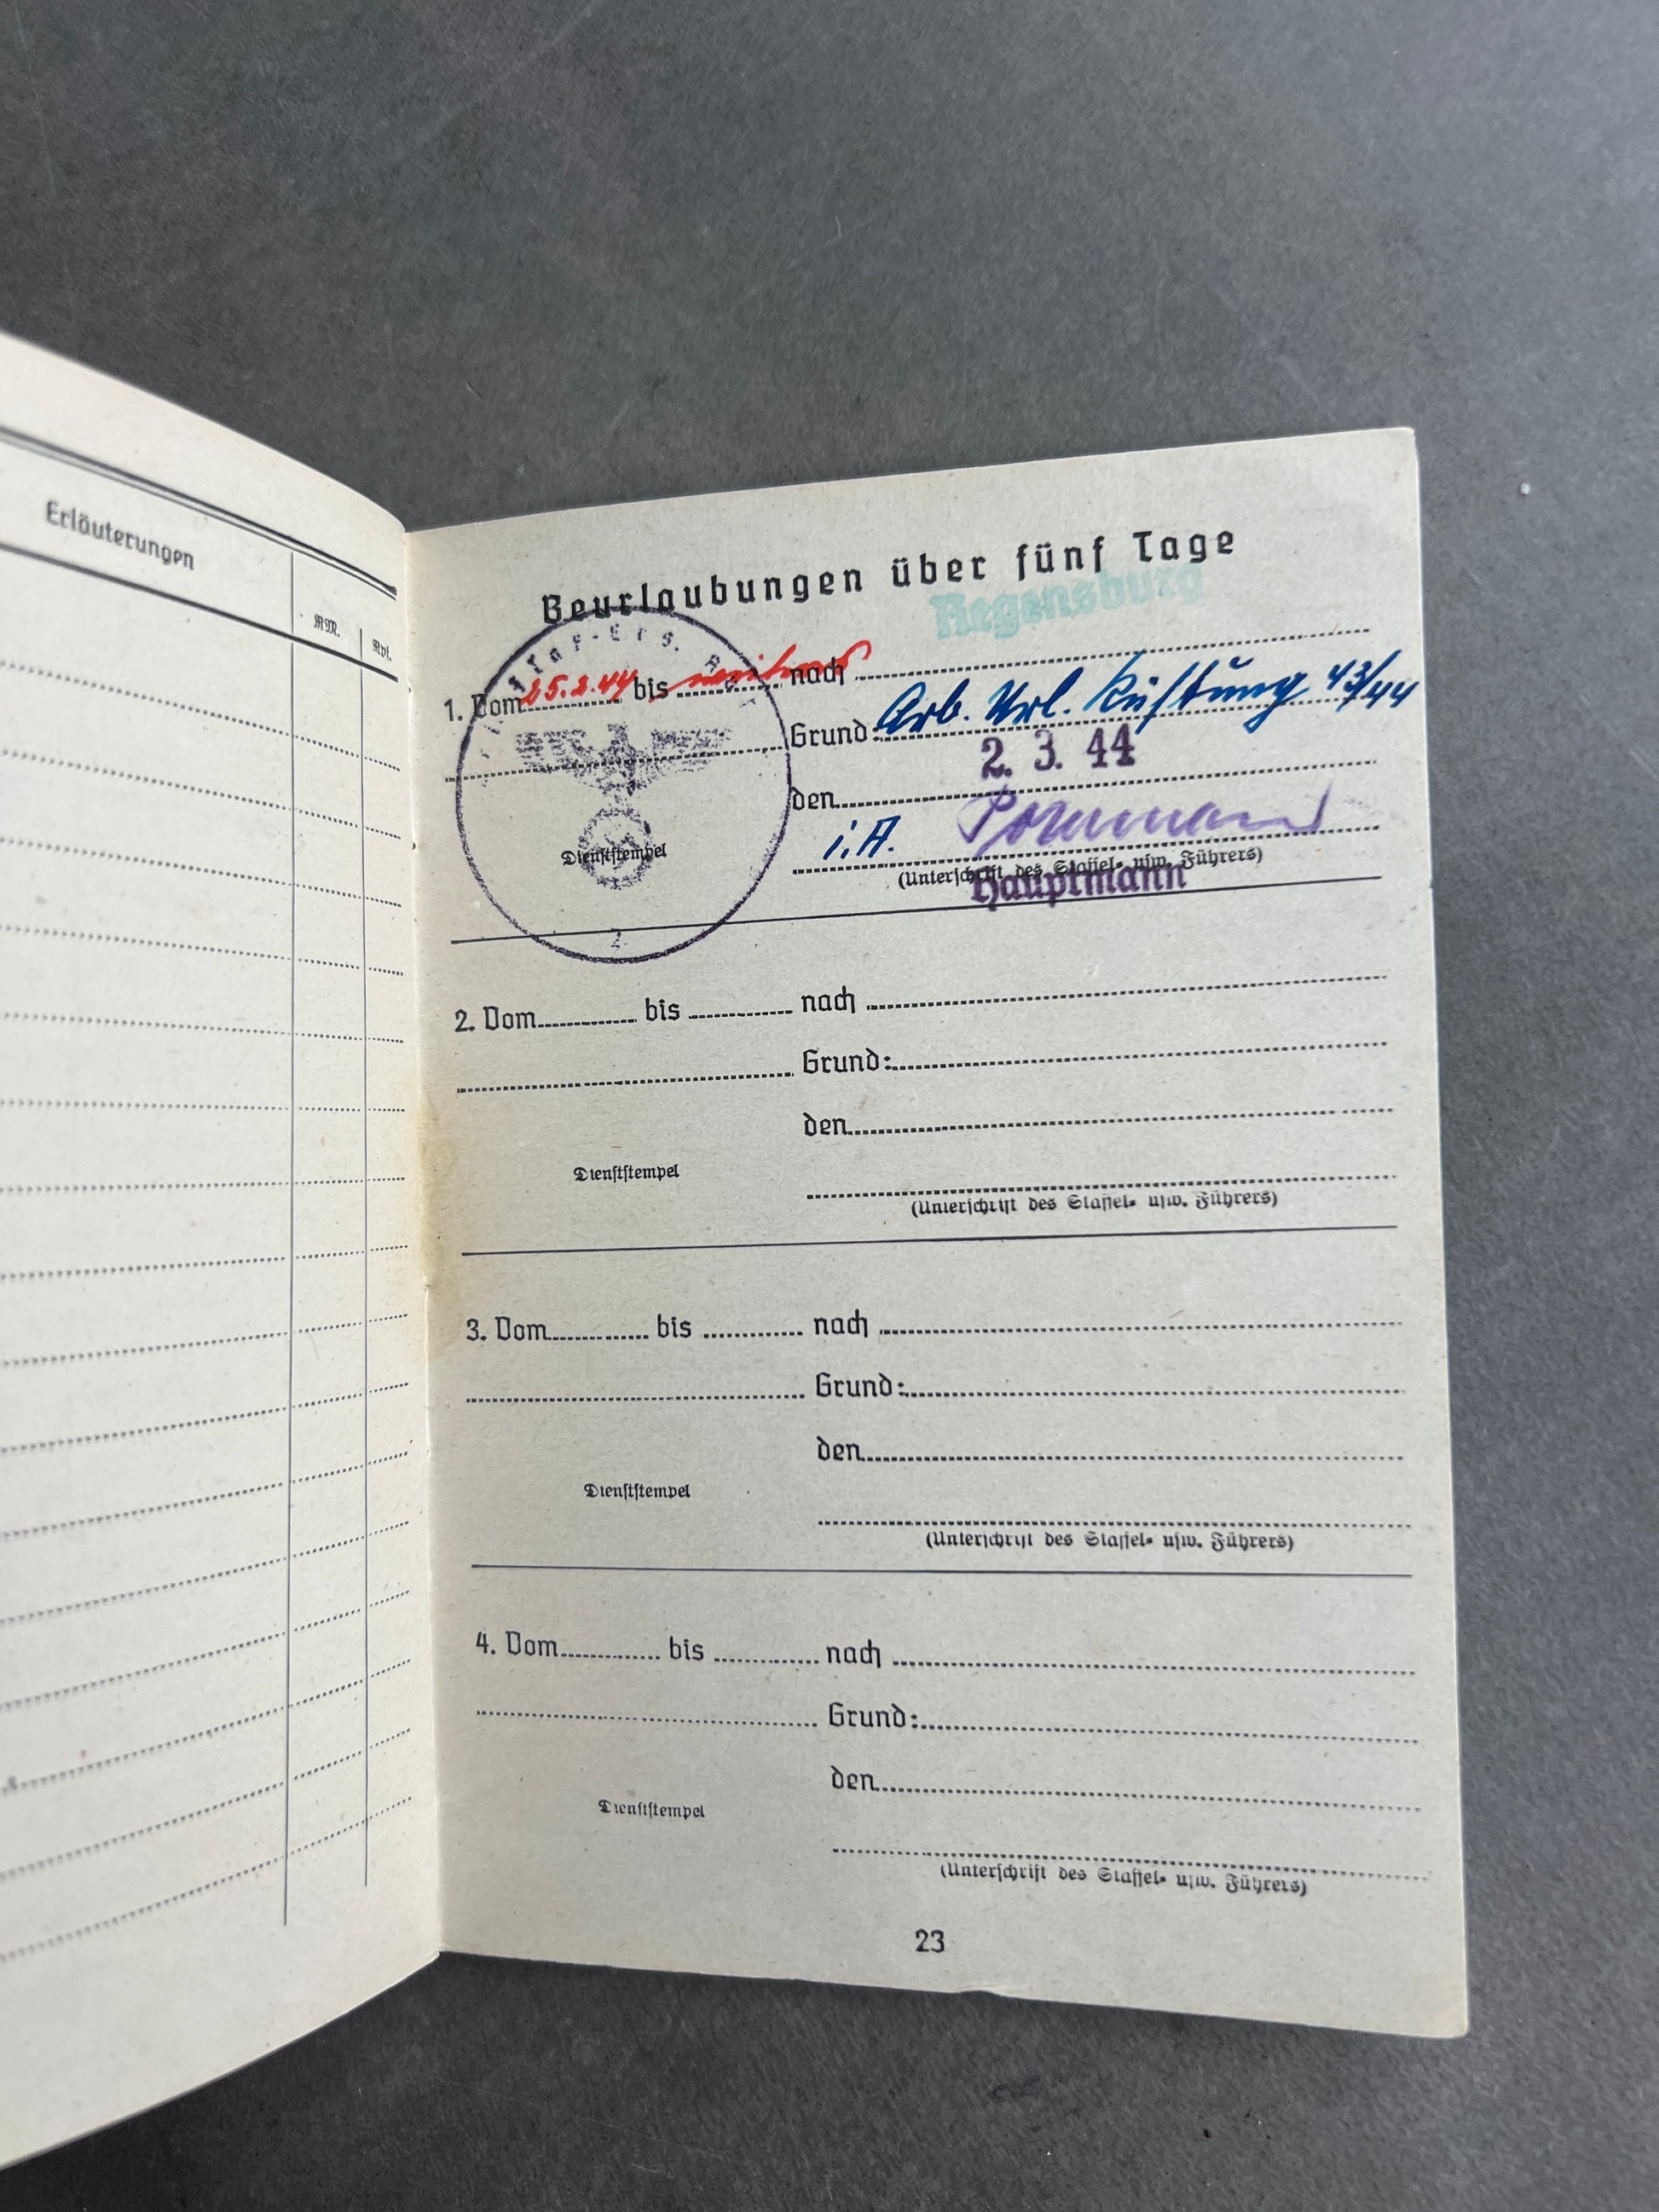 Erläuterungen
RM.
Rpf.
Beurlaubungen über fünf Tage
Regensburg
1. Vom 25.2.44 bis nach
Grund: Arb. Url. Rüstung 43/44
2. 3. 44
den
i.A.
Dienststempel
(Unterschrift des Staffel- usw. Führers)
Hauptmann
2. Vom bis nach
Grund:
den
Dienststempel
(Unterschrift des Staffel- usw. Führers)
3. Vom bis nach
Grund:
den
Dienststempel
(Unterschrift des Staffel- usw. Führers)
4. Vom bis nach
Grund:
den
Dienststempel
(Unterschrift des Staffel- usw. Führers)
23